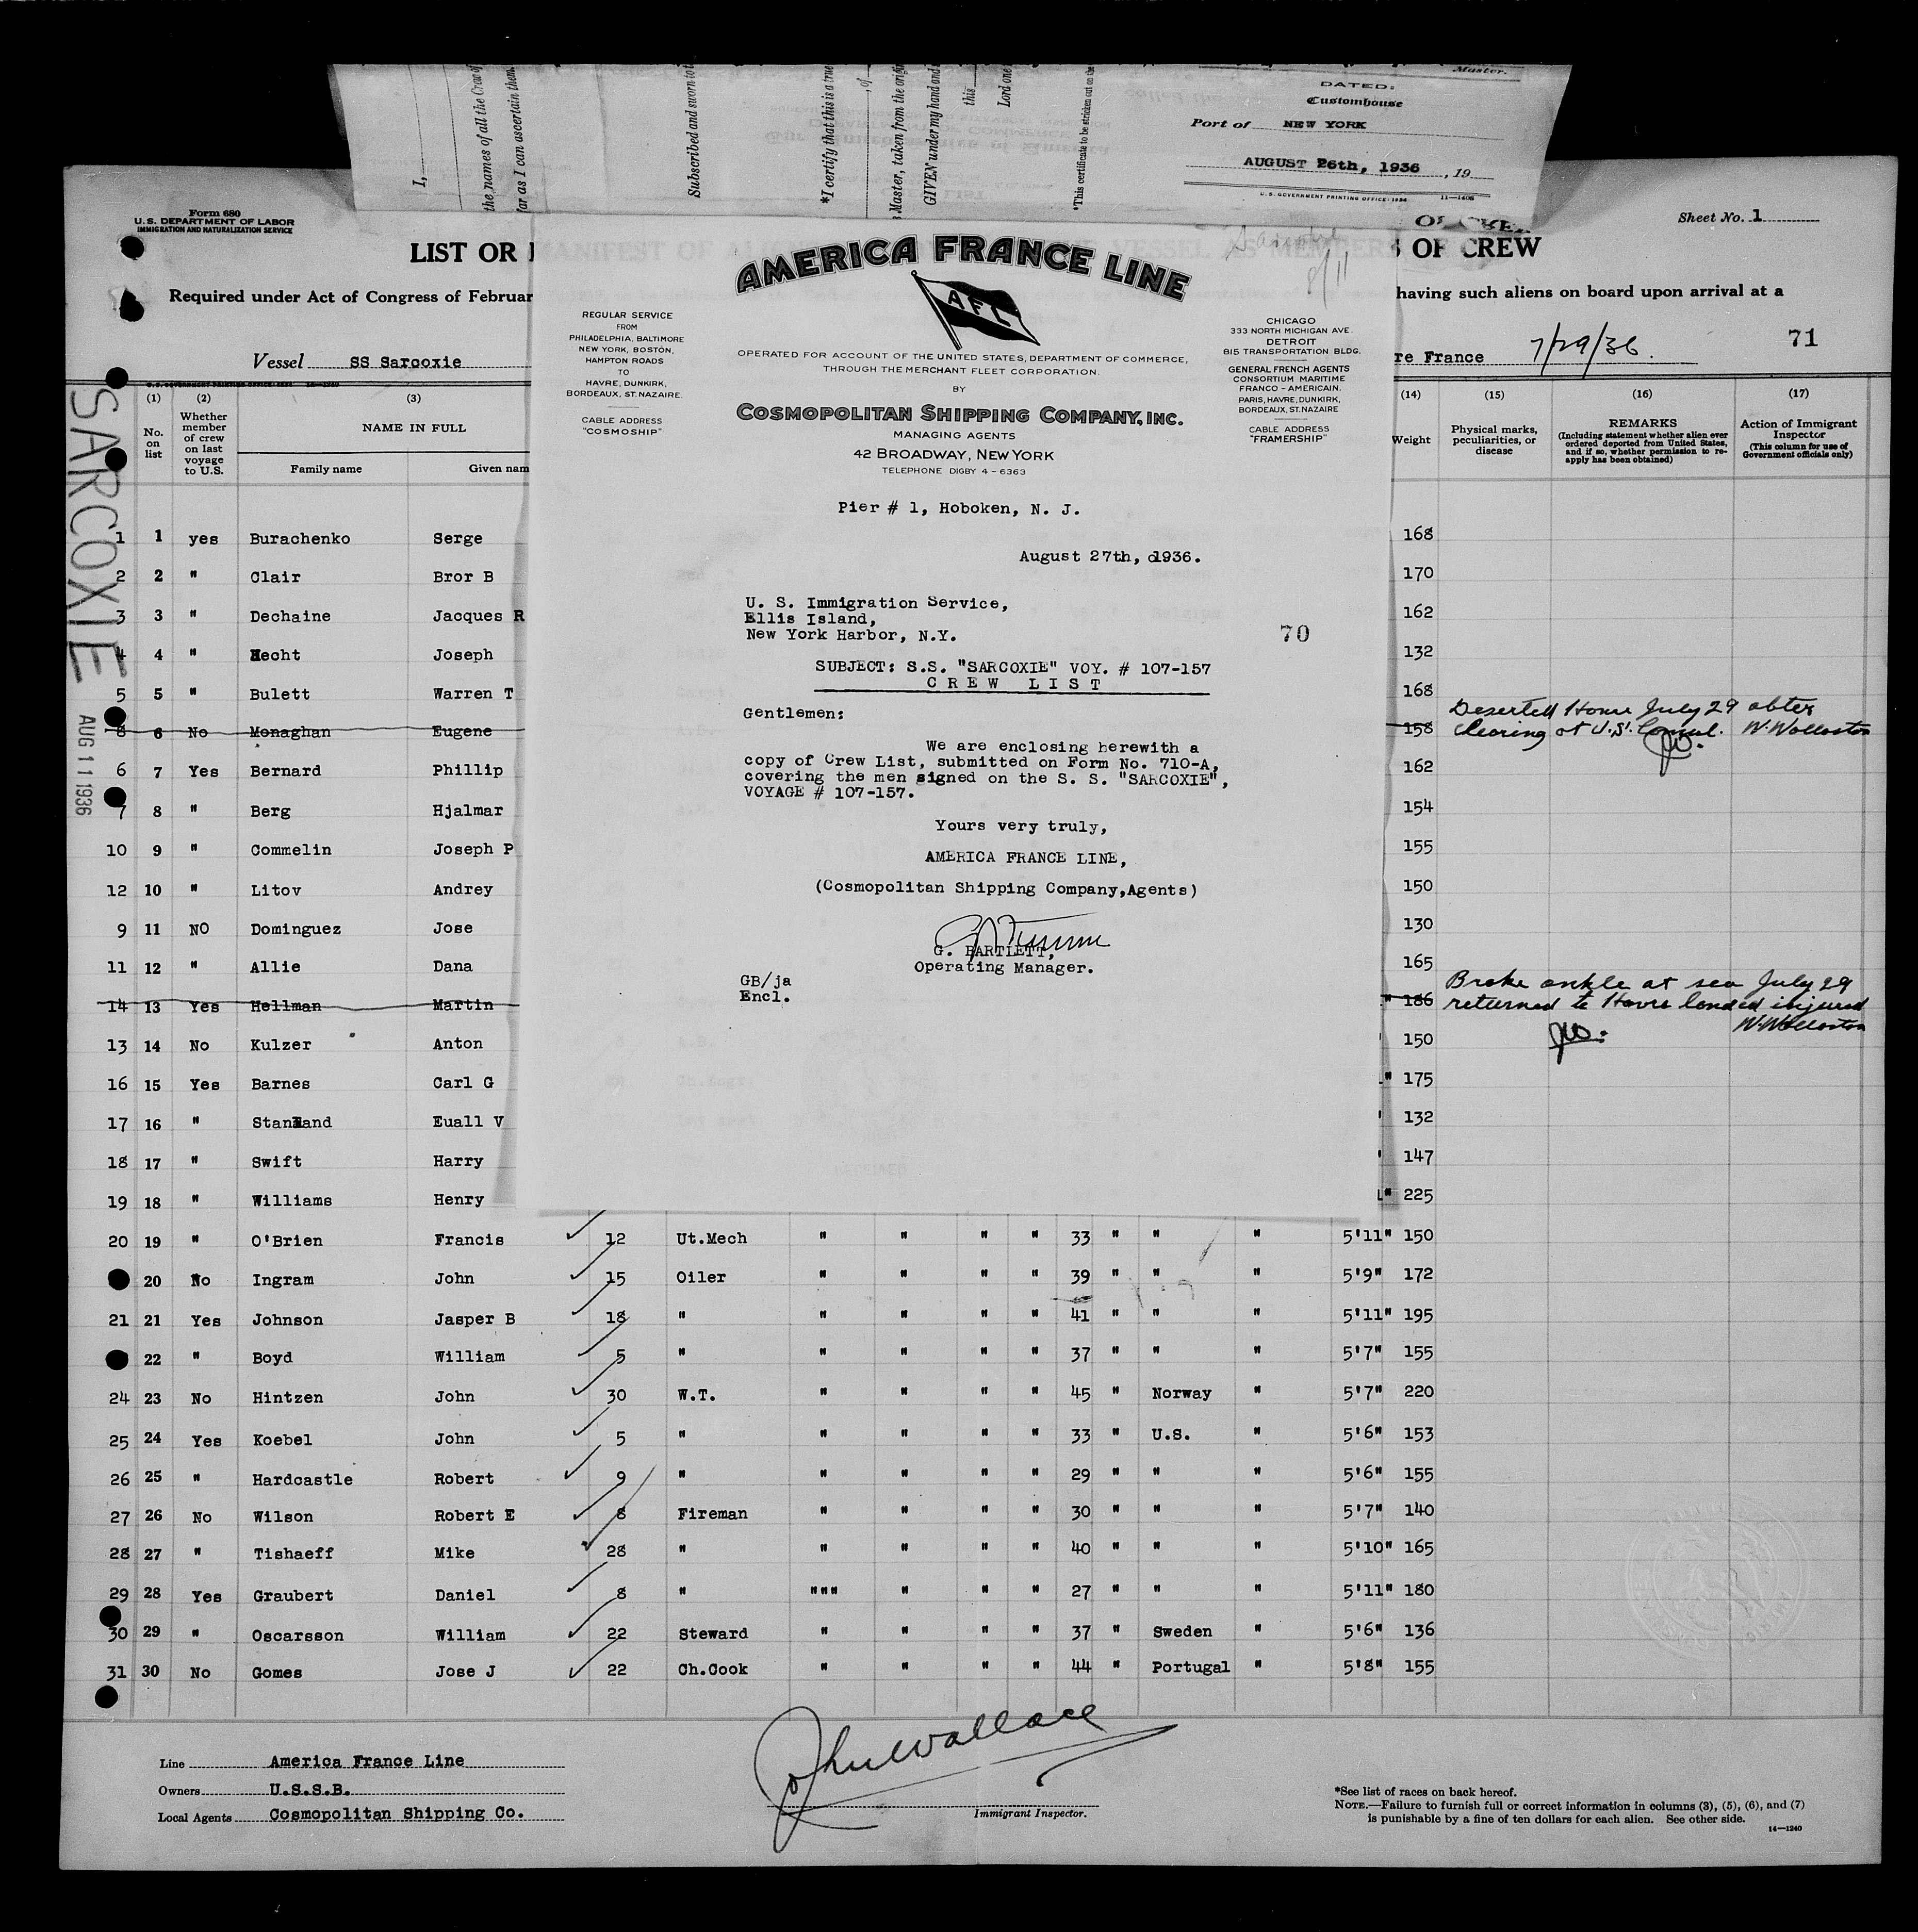 I,
the names of all the Crew of
far as I can ascertain them
Subscribed and sworn to
*I certify that this is a true
, of
Master, taken from the origi
GIVEN under my hand and
this
Lord one
*This certificate to be stricken out on the
Master.
DATED:
Customhouse
Port of NEW YORK
AUGUST 26th, 1936, 19
U. S. GOVERNMENT PRINTING OFFICE: 1934 11—1406
Form 680
U. S. DEPARTMENT OF LABOR
IMMIGRATION AND NATURALIZATION SERVICE
Sheet No. 1
LIST OR
OF CREW
Required under Act of Congress of Februar
having such aliens on board upon arrival at a
Vessel SS Sarcoxie
re France 7/29/36.
71
SARCOXIE
AUG 11 1936
AMERICA FRANCE LINE
AFL
8/11
REGULAR SERVICE
FROM
PHILADELPHIA, BALTIMORE
NEW YORK, BOSTON,
HAMPTON ROADS
TO
HAVRE, DUNKIRK,
BORDEAUX, ST. NAZAIRE.
CABLE ADDRESS
"COSMOSHIP"
OPERATED FOR ACCOUNT OF THE UNITED STATES, DEPARTMENT OF COMMERCE,
THROUGH THE MERCHANT FLEET CORPORATION.
BY
COSMOPOLITAN SHIPPING COMPANY, INC.
MANAGING AGENTS
42 BROADWAY, NEW YORK
TELEPHONE DIGBY 4-6363
CHICAGO
333 NORTH MICHIGAN AVE.
DETROIT
815 TRANSPORTATION BLDG.
GENERAL FRENCH AGENTS
CONSORTIUM MARITIME
FRANCO - AMERICAIN.
PARIS, HAVRE, DUNKIRK,
BORDEAUX, ST. NAZAIRE
CABLE ADDRESS
"FRAMERSHIP"
Pier # 1, Hoboken, N. J.
August 27th, 1936.
U. S. Immigration Service,
Ellis Island,
New York Harbor, N.Y.
70
SUBJECT: S.S. "SARCOXIE" VOY. # 107-157
CREW LIST
Gentlemen:
We are enclosing herewith a
copy of Crew List, submitted on Form No. 710-A,
covering the men signed on the S. S. "SARCOXIE",
VOYAGE # 107-157.
Yours very truly,
AMERICA FRANCE LINE,
(Cosmopolitan Shipping Company,Agents)
G. BARTLETT,
Operating Manager.
GB/ja
Encl.
(1) (2) (3) (14) (15) (16) (17)
No. on list
Whether member of crew on last voyage to U.S.
NAME IN FULL
Family name Given nam
Weight
Physical marks, peculiarities, or disease
REMARKS
(Including statement whether alien ever ordered deported from United States, and if so, whether permission to reapply has been obtained)
Action of Immigrant Inspector
(This column for use of Government officials only)
1 1 yes Burachenko Serge 168
2 2 " Clair Bror B 170
3 3 " Dechaine Jacques R 162
4 4 " Hecht Joseph 132
5 5 " Bulett Warren T 168
8 6 No Monaghan Eugene 158 Deserted Havre July 29 after
clearing at U.S. Consul. W. Wollaston
6 7 Yes Bernard Phillip 162
7 8 " Berg Hjalmar 154
10 9 " Commelin Joseph P 155
12 10 " Litov Andrey 150
9 11 NO Dominguez Jose 130
11 12 " Allie Dana 165
14 13 Yes Hellman Martin " 186 Broke ankle at sea July 29
returned to Havre landed injured
W. Wollaston
13 14 No Kulzer Anton 150
16 15 Yes Barnes Carl G " 175
17 16 " Stanland Euall V 132
18 17 " Swift Harry 147
19 18 " Williams Henry " 225
20 19 " O'Brien Francis 12 Ut.Mech " " " " 33 " " " 5'11" 150
20 No Ingram John 15 Oiler " " " " 39 " " " 5'9" 172
21 21 Yes Johnson Jasper B 18 " " " " " 41 " " " 5'11" 195
22 " Boyd William 5 " " " " " 37 " " " 5'7" 155
24 23 No Hintzen John 30 W.T. " " " " 45 " Norway " 5'7" 220
25 24 Yes Koebel John 5 " " " " " 33 " U.S. " 5'6" 153
26 25 " Hardcastle Robert 9 " " " " " 29 " " " 5'6" 155
27 26 No Wilson Robert E 8 Fireman " " " " 30 " " " 5'7" 140
28 27 " Tishaeff Mike 28 " " " " " 40 " " " 5'10" 165
29 28 Yes Graubert Daniel 8 " """ " " " 27 " " " 5'11" 180
30 29 " Oscarsson William 22 Steward " " " " 37 " Sweden " 5'6" 136
31 30 No Gomes Jose J 22 Ch.Cook " " " " 44 " Portugal " 5'8" 155
Line America France Line
Owners U.S.S.B.
Local Agents Cosmopolitan Shipping Co.
John Wallace
Immigrant Inspector.
*See list of races on back hereof.
NOTE.—Failure to furnish full or correct information in columns (3), (5), (6), and (7)
is punishable by a fine of ten dollars for each alien. See other side.
14—1240